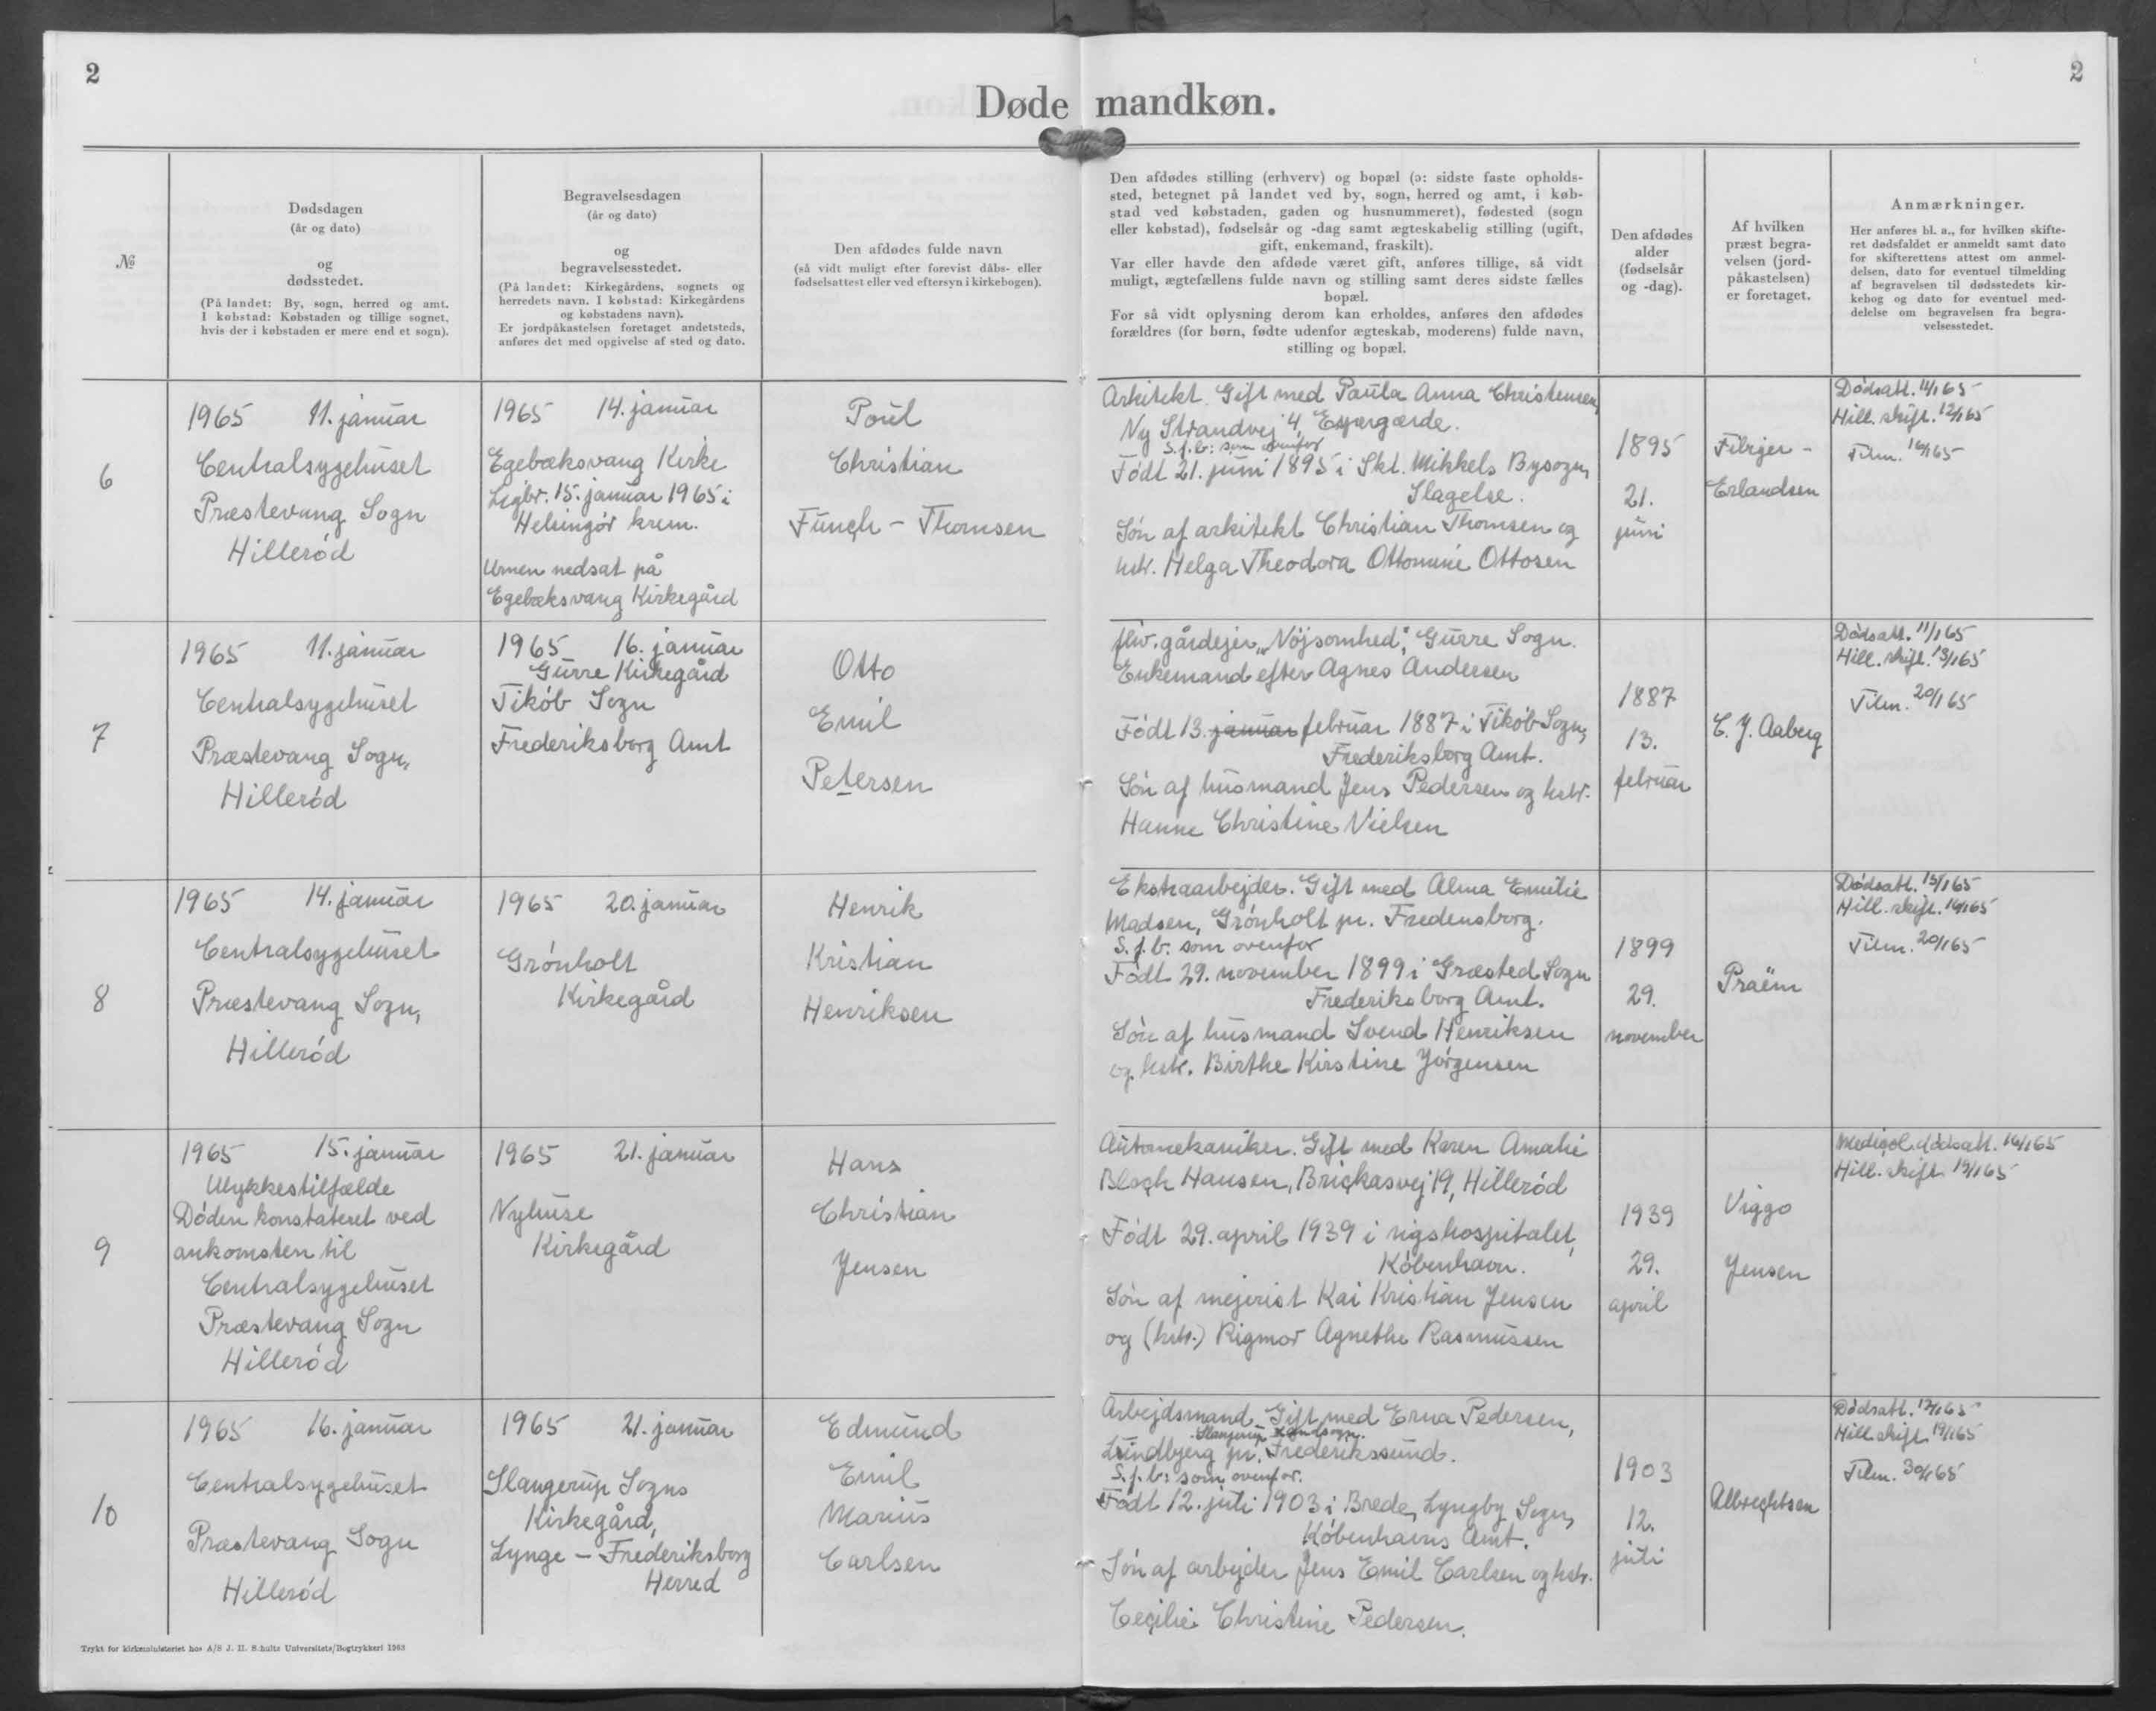 2
2
Døde mandkøn.
№
Dødsdagen
(år og dato)
og
dødsstedet.
(På landet: By, sogn, herred og amt.
I købstad: Købstaden og tillige sognet,
hvis der i købstaden er mere end et sogn).
Begravelsesdagen
(år og dato)
og
begravelsesstedet.
(På landet: Kirkegårdens, sognets og
herredets navn. I købstad: Kirkegårdens
og købstadens navn).
Er jordpåkastelsen foretaget andetsteds,
anføres det med opgivelse af sted og dato.
Den afdødes fulde navn
(så vidt muligt efter forevist dåbs- eller
fødselsattest eller ved eftersyn i kirkebogen).
Den afdødes stilling (erhverv) og bopæl (ɔ: sidste faste opholds-
sted, betegnet på landet ved by, sogn, herred og amt, i køb-
stad ved købstaden, gaden og husnummeret), fødested (sogn
eller købstad), fødselsår og -dag samt ægteskabelig stilling (ugift,
gift, enkemand, fraskilt).
Var eller havde den afdøde været gift, anføres tillige, så vidt
muligt, ægtefællens fulde navn og stilling samt deres sidste fælles
bopæl.
For så vidt oplysning derom kan erholdes, anføres den afdødes
forældres (for børn, fødte udenfor ægteskab, moderens) fulde navn,
stilling og bopæl.
Den afdødes
alder
(fødselsår
og -dag).
Af hvilken
præst begra-
velsen (jord-
påkastelsen)
er foretaget.
Anmærkninger.
Her anføres bl. a., for hvilken skifte-
ret dødsfaldet er anmeldt samt dato
for skifterettens attest om anmel-
delsen, dato for eventuel tilmelding
af begravelsen til dødsstedets kir-
kebog og dato for eventuel med-
delelse om begravelsen fra begra-
velsesstedet.
6
1965 11. januar
Centralsygehuset
Præstevang Sogn
Hillerød
1965 14. januar
Egebæksvang Kirke
Ligbr. 15. januar 1965 i
Helsingør krem.
Urnen nedsat på
Egebæksvang Kirkegård
Poul
Christian
Funch - Thomsen
Arkitekt. Gift med Paula Anna Christensen,
Ny Strandvej 4, Espergærde.
S.f.b: som ovenfor
Født 21. juni 1895 i Skt. Mikkels Bysogn,
Slagelse.
Søn af arkitekt Christian Thomsen og
hstr. Helga Theodora Ottomine Ottosen
1895
21.
juni
Fibiger -
Erlandsen
Dødsatt. 11/1 65
Hill. skift. 12/1 65
Tilm. 16/1 65
7
1965 11. januar
Centralsygehuset
Præstevang Sogn,
Hillerød
1965 16. januar
Gurre Kirkegård
Tikøb Sogn
Frederiksborg Amt
Otto
Emil
Petersen
fhv. gårdejer, „Nøjsomhed", Gurre Sogn.
Enkemand efter Agnes Andersen
Født 13. januar februar 1887 i Tikøb Sogn,
Frederiksborg Amt.
Søn af husmand Jens Pedersen og hstr.
Hanne Christine Nielsen
1887
13.
februar
C. J. Aaberg
Dødsatt. 11/1 65
Hill. skift. 13/1 65
Tilm. 20/1 65
8
1965 14. januar
Centralsygehuset
Præstevang Sogn,
Hillerød
1965 20. januar
Grønholt
Kirkegård
Henrik
Kristian
Henriksen
Ekstraarbejder. Gift med Alma Emilie
Madsen, Grønholt pr. Fredensborg.
S.f.b: som ovenfor
Født 29. november 1899 i Græsted Sogn
Frederiksborg Amt.
Søn af husmand Svend Henriksen
og hstr. Birthe Kirstine Jørgensen
1899
29.
november
Praëm
Dødsatt. 15/1 65
Hill. skift. 16/1 65
Tilm. 20/1 65
9
1965 15. januar
Ulykkestilfælde
Døden konstateret ved
ankomsten til
Centralsygehuset
Præstevang Sogn
Hillerød
1965 21. januar
Nyhuse
Kirkegård
Hans
Christian
Jensen
Automekaniker. Gift med Karen Amalie
Bloch Hansen, Brickasvej 19, Hillerød
Født 29. april 1939 i rigshospitalet,
København.
Søn af mejerist Kai Kristian Jensen
og (hstr.) Rigmor Agnethe Rasmussen
1939
29.
april
Viggo
Jensen
Medicol. dødsatt. 16/1 65
Hill. skift. 19/1 65
10
1965 16. januar
Centralsygehuset
Præstevang Sogn
Hillerød
1965 21. januar
Slangerup Sogns
Kirkegård,
Lynge - Frederiksborg
Herred
Edmund
Emil
Marius
Carlsen
Arbejdsmand. Gift med Erna Pedersen,
Slangerup Landsogn.
Lundbjerg pr. Frederikssund.
S.f.b: som ovenfor.
Født 12. juli 1903 i Brede, Lyngby Sogn,
Københavns Amt.
Søn af arbejder Jens Emil Carlsen og hstr.
Cecilie Christine Pedersen.
1903
12.
juli
Albrechtsen
Dødsatt. 17/1 65
Hill. skift. 19/1 65
Tilm. 30/1 65
Trykt for kirkeministeriet hos A/S J. H. Schultz Universitets/Bogtrykkeri 1963